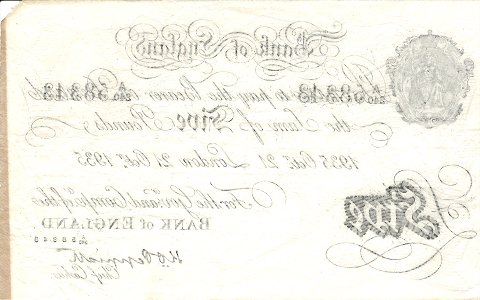 Bank of England
58343 to pay the Bearer 58343
the Sum of Five Pounds
1935 Oct. 21 London 21 Oct. 1935
For the Gov. and Comp. of the
BANK of ENGLAND.
58343
Five
Chief Cashier